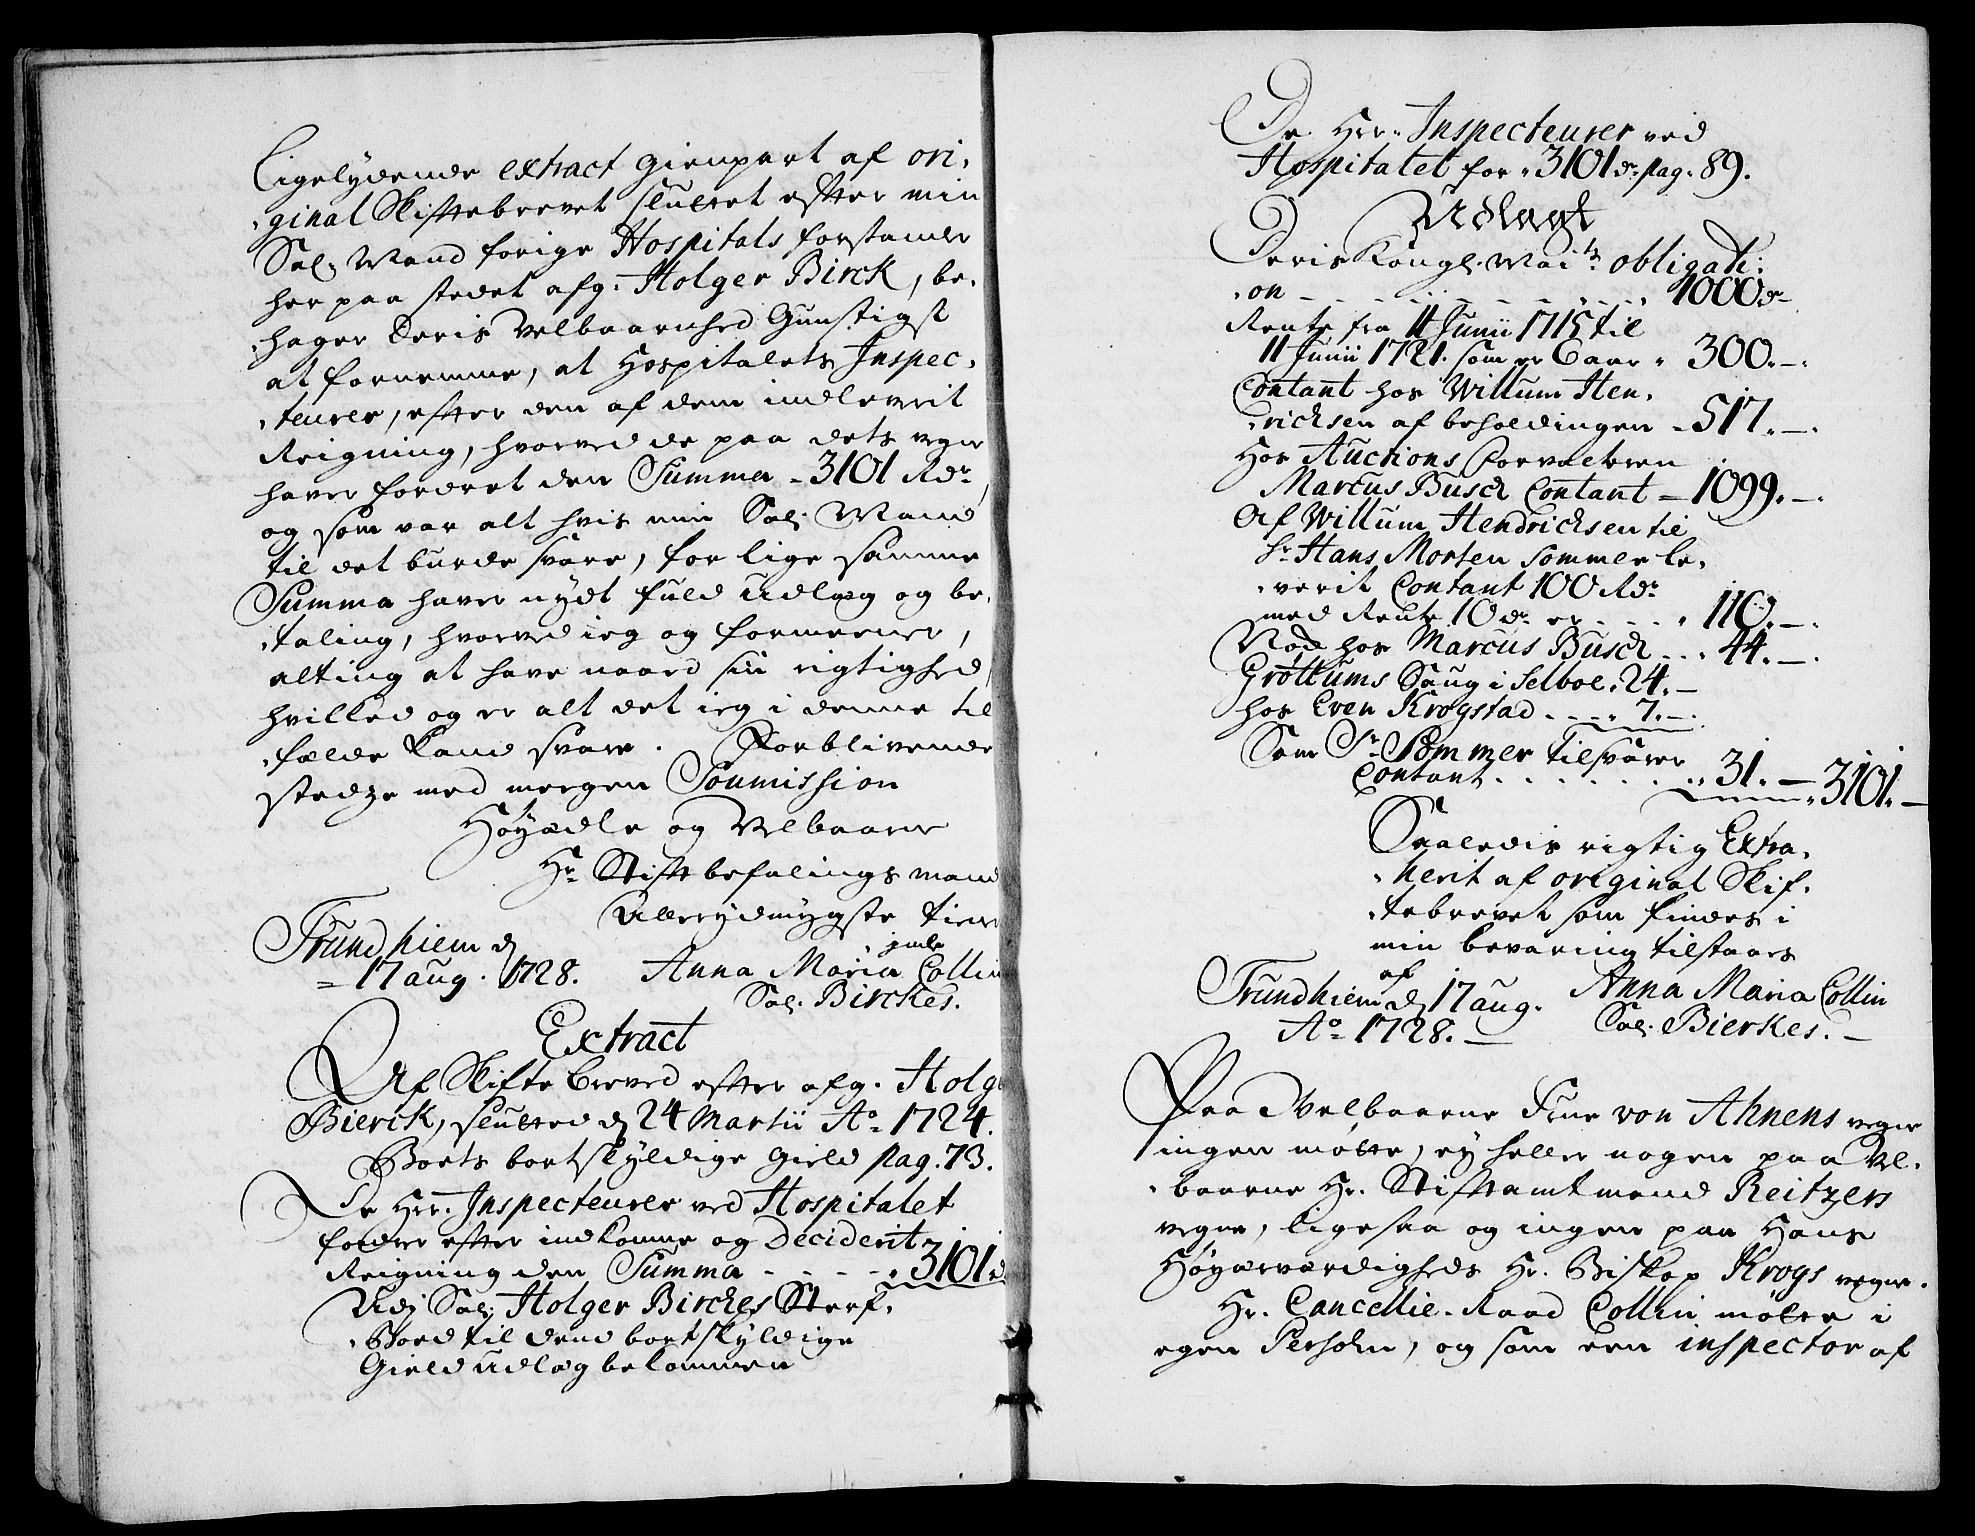 Ligelydende extract gienpart af ori-
ginal Skiftebrevet sluttet efter min
Sal. Mand forige Hospitals forstander
her paa stedet afg. Holger Birck, be-
hager Deris Velbaarnhed Gunstigst
at fornemme, at Hospitalets Inspec-
teurer, efter den af dem indleverit
Reigning, hvorved de paa dets vegne
haver fordret den Summa 3101 Rdr
og som var alt hvis min Sal. Mand
til det burde svare, for lige samme
Summa haver nydt fuld udlæg og be-
taling, hvorved ieg og formeener,
alting at have naaed sin rigtighed
hvilked og er alt det ieg i denne til
fælde kand svare. Forblivende
stedze med megen Soumission
Høyædle og Velbaarne
Hr. Stiftbefalings mand
Allerydmygste tiener
Trundhiem d
17 aug. 1728. Anna Maria Collin
Sal. Birckes.
Extract
Af Skifte brevet efter afg. Holger
Bierck, sluttet d 24 Martii Ao 1724.
Boets bortskyldige Gield pag. 73.
De Hrr. Inspecteurer ved Hospitalet
fordrer efter indkomne og Deciderit
Reigning den Summa - - - - 3101 d
Udj Sal. Holger Birches Sterf-
Boed til dend bortskyldige
Gield udlæg bekommen
De Hrr. Inspecteurer ved
Hospitalet for 3101 dr pag. 89.
Udlagt
Deris Kongl. Mai.ts obligati-
on - - - - - - - 1000 dr
Rente fra 11 Junii 1715 til
11 Junii 1721. som er 6 aar 300. -
Contant hos Willum Hen-
richsen af beholdingen - 517. -
Hos Auctions Forvalteren
Marcus Busch Contant - 1099. -
Af Willum Hendrichsen til
Sr Hans Morten Sommer le-
verit Contant 100 Rdr
med Rente 10 dr er . . . . 110. -
Nød hos Marcus Busch . . . 44. -
Grøttums Saug i Selboe. 24. -
hos Even Krogstad . . . . 7. -
Som Sr Sommer tilsvarer
Contant . . . . . . . 31. - 3101. -
Saaledis rigtig Extra-
herit af original Skif-
tebrevet som findes i
min bevaring tilstaaes
af
Trundhiem d 17 aug. Anna Maria Collin
Ao 1728. - Sal. Bierkes. -
Paa Velbaarne Frue von Ahnens vegne
ingen møtte, ey heller nogen paa Vel-
baarne Hr. Stiftamtmand Reitzers
vegne, ligesaa og ingen paa Hans
Høyærværdigheds Hr. Biskop Krogs vegne.
Hr. Cancellie-Raad Collin møtte i
egen Persohn, og som een inspector af